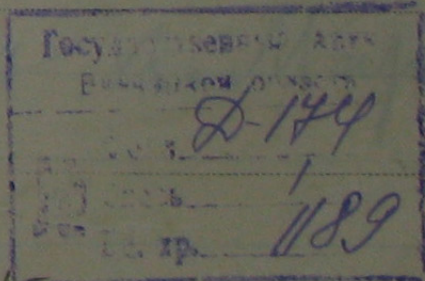 Государственный архив
Винницкой области
Фонд Д-174
Опись 1
Ед. хр. 1189